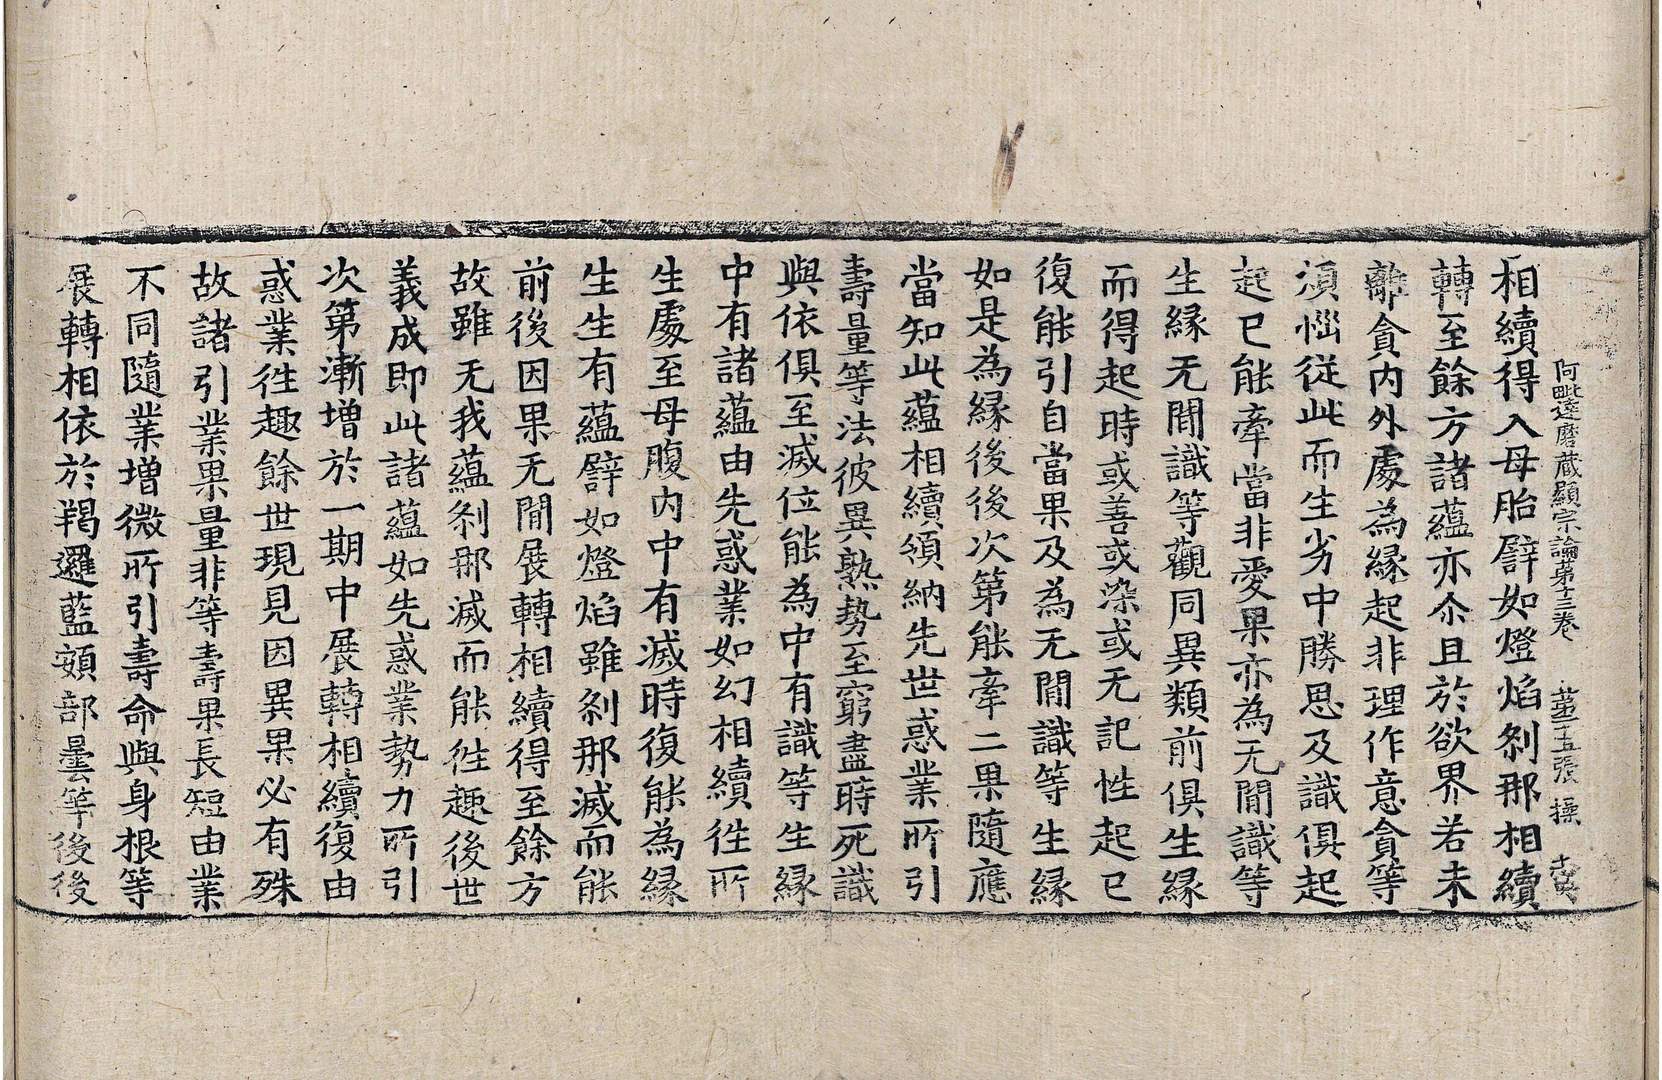 阿毗達磨藏顯宗論第十三卷 第十五張 操
相續得入母胎譬如燈焰剎那相續
轉至餘方諸蘊亦尒且於欲界若未
離貪內外處為緣起非理作意貪等
湏惱從此而生劣中勝思及識俱起
起已能牽當非愛果亦為无間識等
生緣无間識等觀同異類前俱生緣
而得起時或善或染或无記性起已
復能引自當果及為无間識等生緣
如是為緣後後次第能牽二果隨應
當知此蘊相續領納先世惑業所引
壽量等法彼異熟勢至窮盡時死識
與依俱至滅位能為中有識等生緣
中有諸蘊由先惑業如幻相續徃所
生處至母腹內中有滅時復能為緣
生生有蘊譬如燈焰雖剎那滅而能
前後因果无間展轉相續得至餘方
故雖无我蘊剎那滅而能徃趣後世
義成即此諸蘊如先惑業勢力所引
次第漸增於一期中展轉相續復由
惑業徃趣餘世現見因異果必有殊
故諸引業果量非等壽果長短由業
不同隨業增微所引壽命與身根等
展轉相依於羯邏藍頞部曇等後後